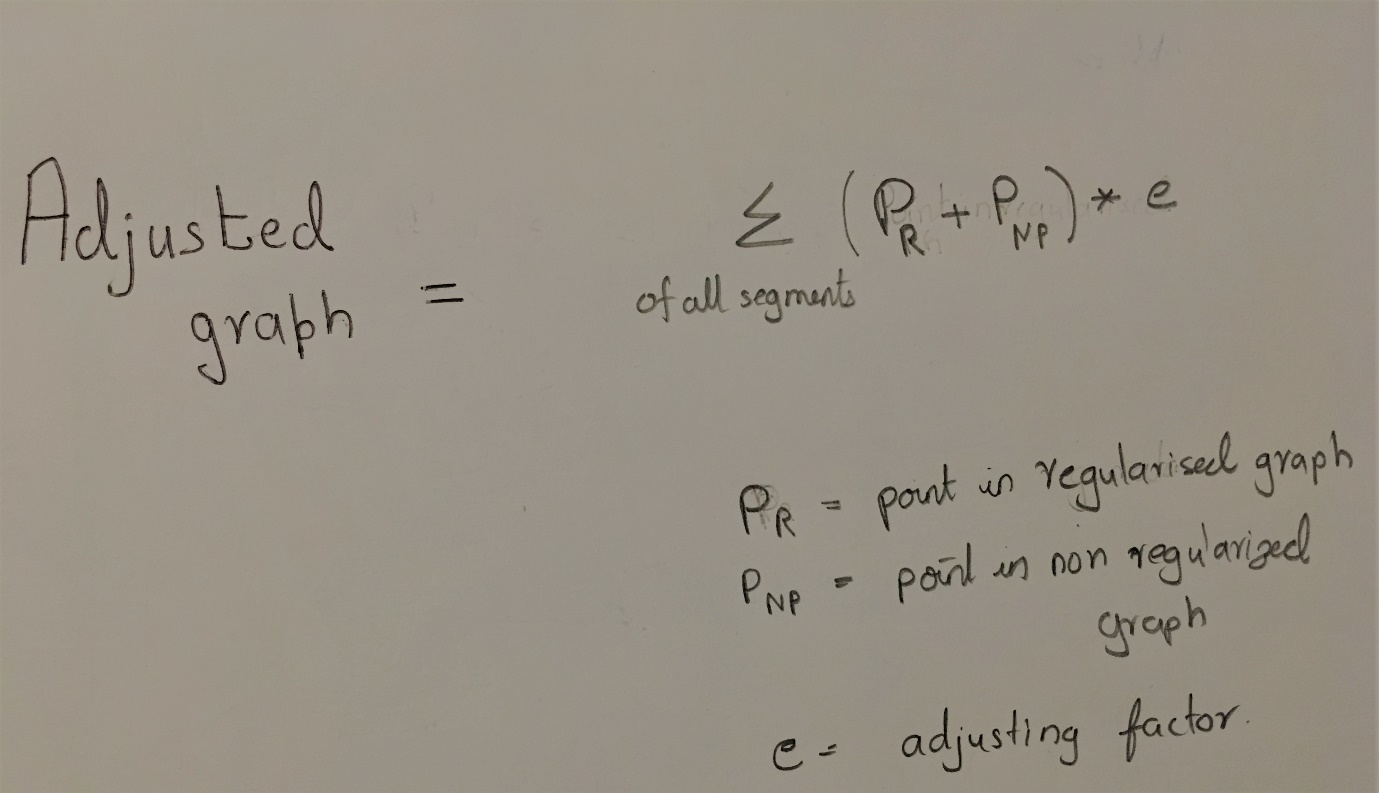 Adjusted
graph =
Σ (P_R + P_NP) * e
of all segments
P_R = point in regularised graph
P_NP = point in non regularized
graph
e = adjusting factor.